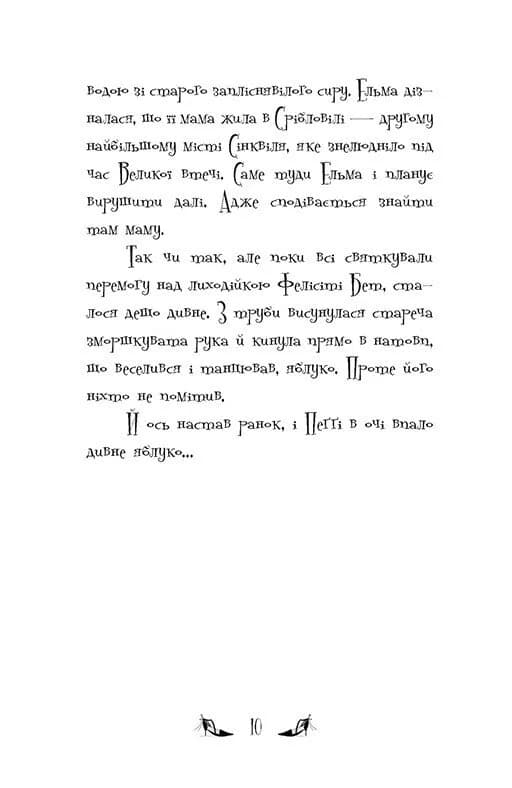 водою зі старого заплісня­вілого сиру. Ельма діз-
налася, що її мама жила в Срібловілі — другому
найбільшому місті Сінквіля, яке знелюдніло під
час Великої втечі. Саме туди Ельма і планує
вирушити далі. Адже сподівається знайти
там маму.
Так чи так, але поки всі святкували
перемогу над лиходійкою Фелісіті Бет, ста-
лося дещо дивне. З труби висунулася стареча
зморшкувата рука й кинула прямо в натовп,
що веселився і танцював, яблуко. Проте його
ніхто не помітив.
Й ось настав ранок, і Пеґґі в очі впало
дивне яблуко...
10